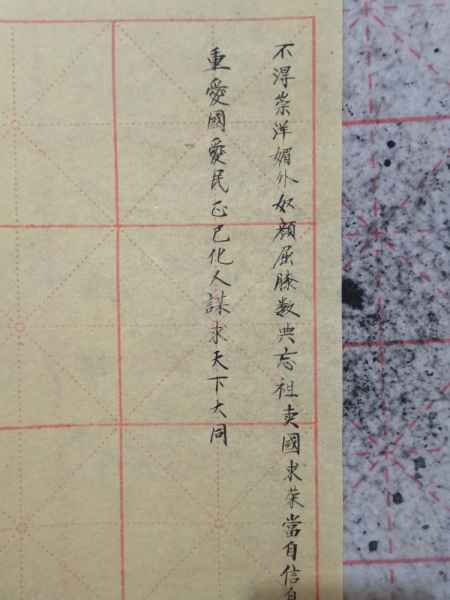 不得崇洋媚外奴顏屈膝数典忘祖卖國求荣當自信自
重愛國愛民正己化人謀求天下大同